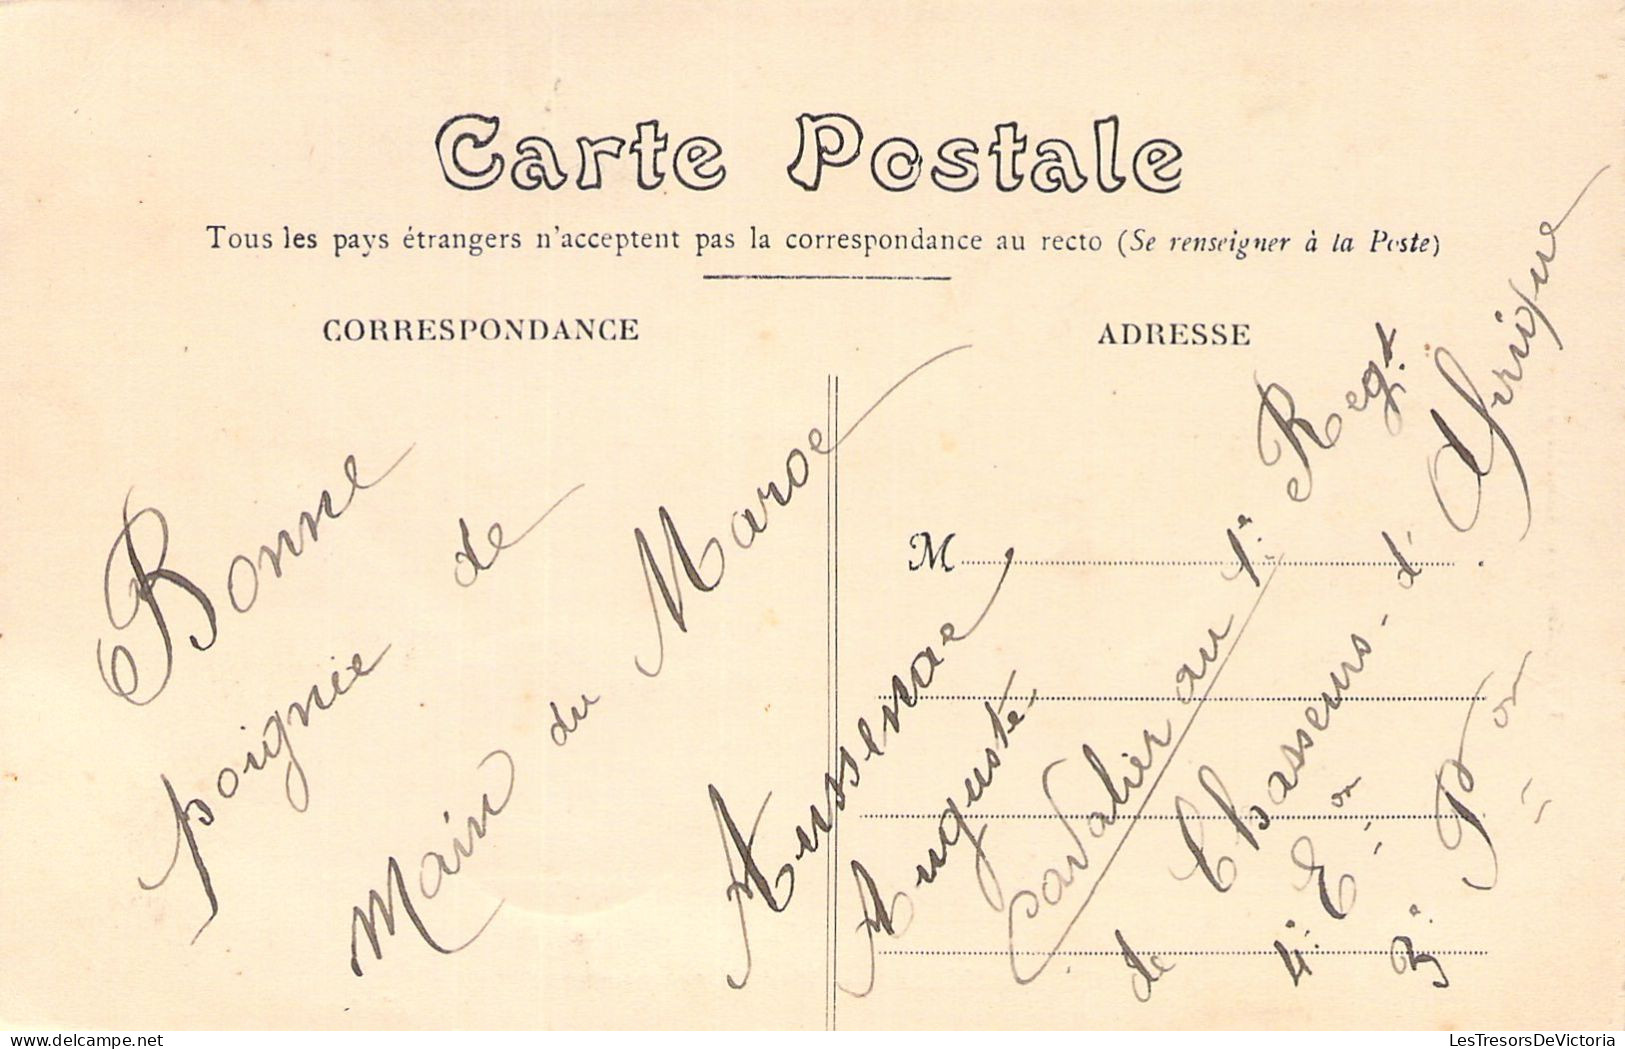 Carte Postale
Tous les pays étrangers n'acceptent pas la correspondance au recto (Se renseigner à la Poste)
CORRESPONDANCE
ADRESSE
Bonne
poignie de
Main du Maroc
M
Aussenac
Auguste
Cavalier au 1e Regt
de Chasseurs d'Afrique
4e Eon
3e Pon
LesTresorsDeVictoria